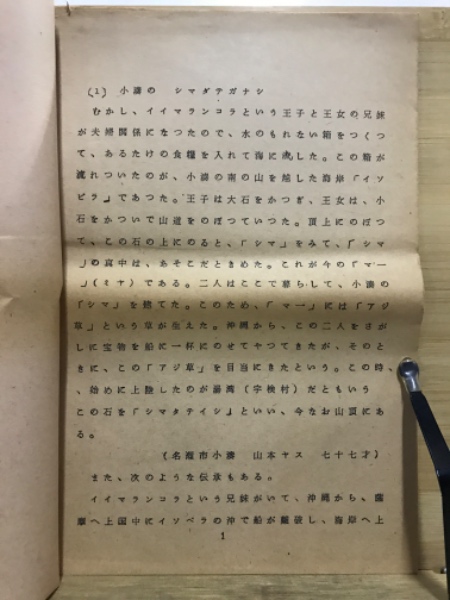 (1) 小湊の シマダテガナシ
むかし、イイマランコラという王子と王女の兄妹
が夫婦関係になつたので、水のもれない箱をつくつ
て、あるたけの食糧を入れて海に流した。この箱が
流れついたのが、小湊の南の山を越した海岸「イソ
ビラ」であつた。王子は大石をかつぎ、王女は、小
石をかついで山道をのぼつていつた。頂上にのぼつ
て、この石の上にのると、「シマ」をみて、「シマ
」の真中は、あそこだときめた。これが今の「マー
」(ミヤ)である。二人はここで暮らして、小湊の
「シマ」を建てた。このため、「マー」には「アジ
草」という草が生えた。沖縄から、この二人をさが
しに宝物を船に一杯にのせてやつてきたが、そのと
きに、この「アジ草」を目当にきたという。この時、
、始めに上陸したのが湯湾(宇検村)だともいう
この石を「シマタテイシ」といい、今なお山頂にあ
る。
(名瀬市小湊 山本ヤス 七十七才)
また、次のような伝承もある。
イイマランコラという兄妹がいて、沖縄から、薩
摩へ上国中にイソベラの沖で船が難破し、海岸へ上
1